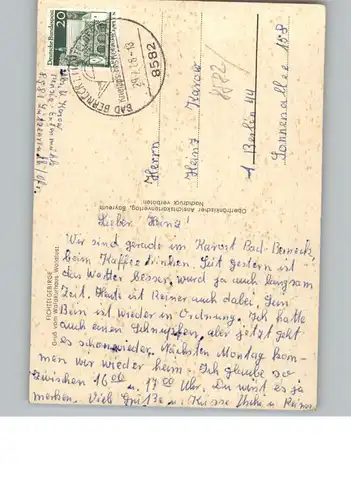 Deutsche Bundespost
20
BAD BERNECK
8582
29.7.68-18
Herrn
Heinz Karow
1 Berlin 44
Sonnenallee 158
Oberfränkischer Ansichtskartenverlag, Bayreuth
Nachdruck verboten
FICHTELGEBIRGE
Lieber Heinz!
Wir sind gerade im Kurort Bad-Berneck
beim Kaffee trinken. Seit gestern ist
das Wetter besser, wurd ja auch langsam
Zeit. Heute ist Reiner auch dabei. Sein
Bein ist wieder in Ordnung. Ich hatte
auch einen Schnupfen, aber jetzt geht
es schon wieder. Nächsten Montag kom-
men wir wieder heim. Ich glaube so
zwischen 16 00 u. 17 00 Uhr. Du wirst es ja
merken. Viel Grüße u. Küsse u. Reiner